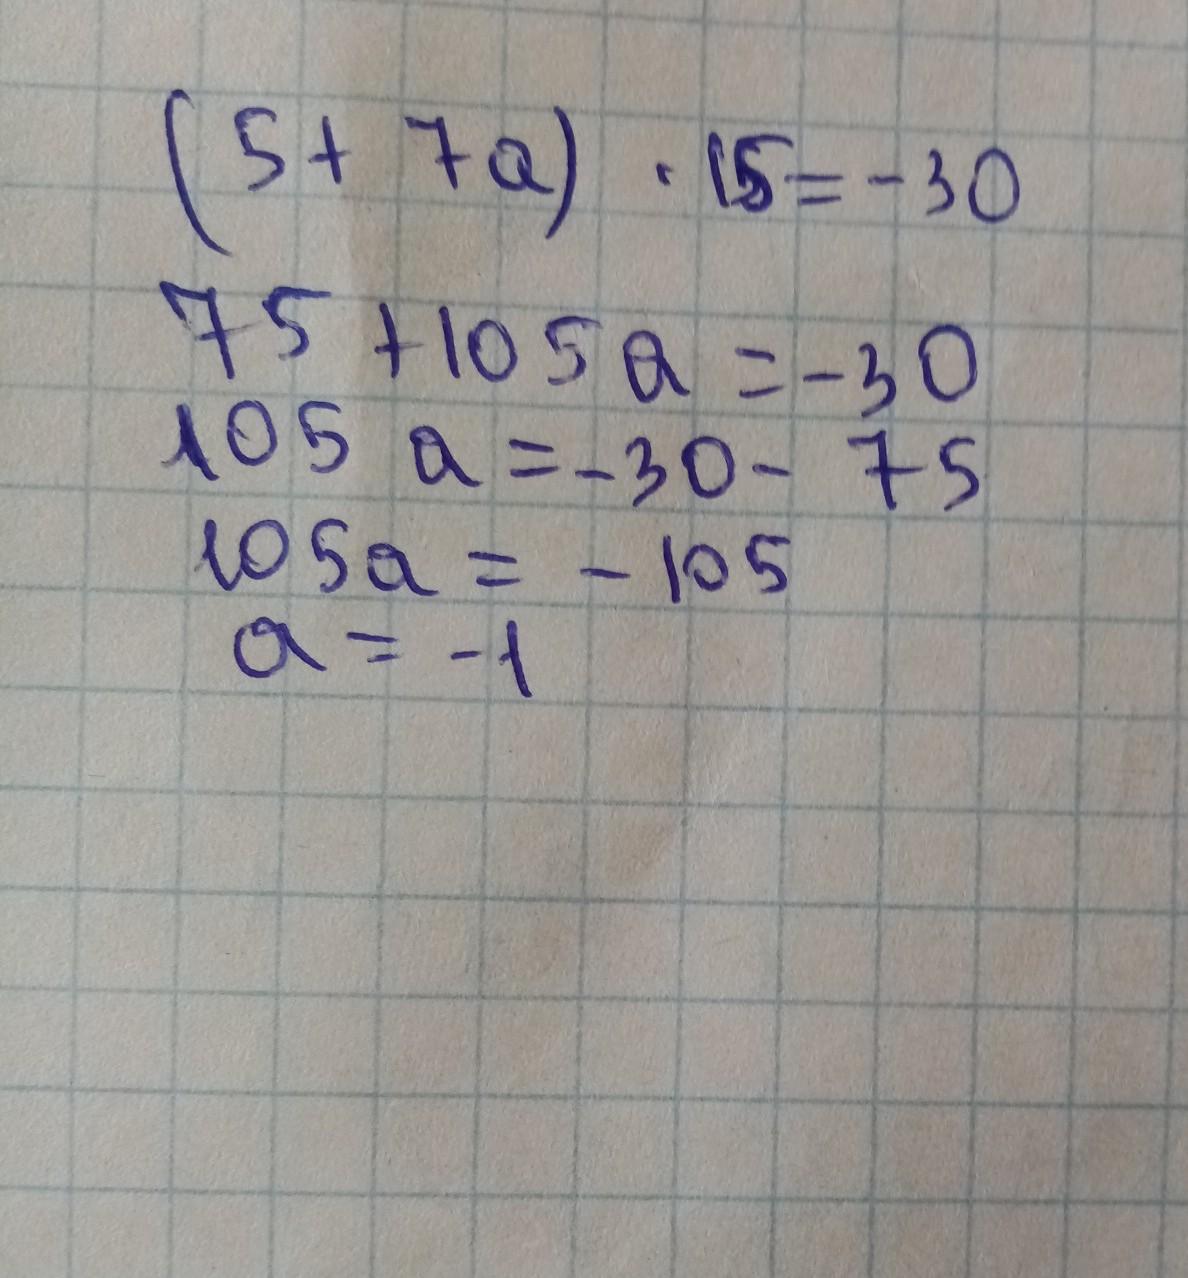 (5+ 7a) · 15=-30
75 +105a =-30
105 a =-30- 75
105a = - 105
a = -1